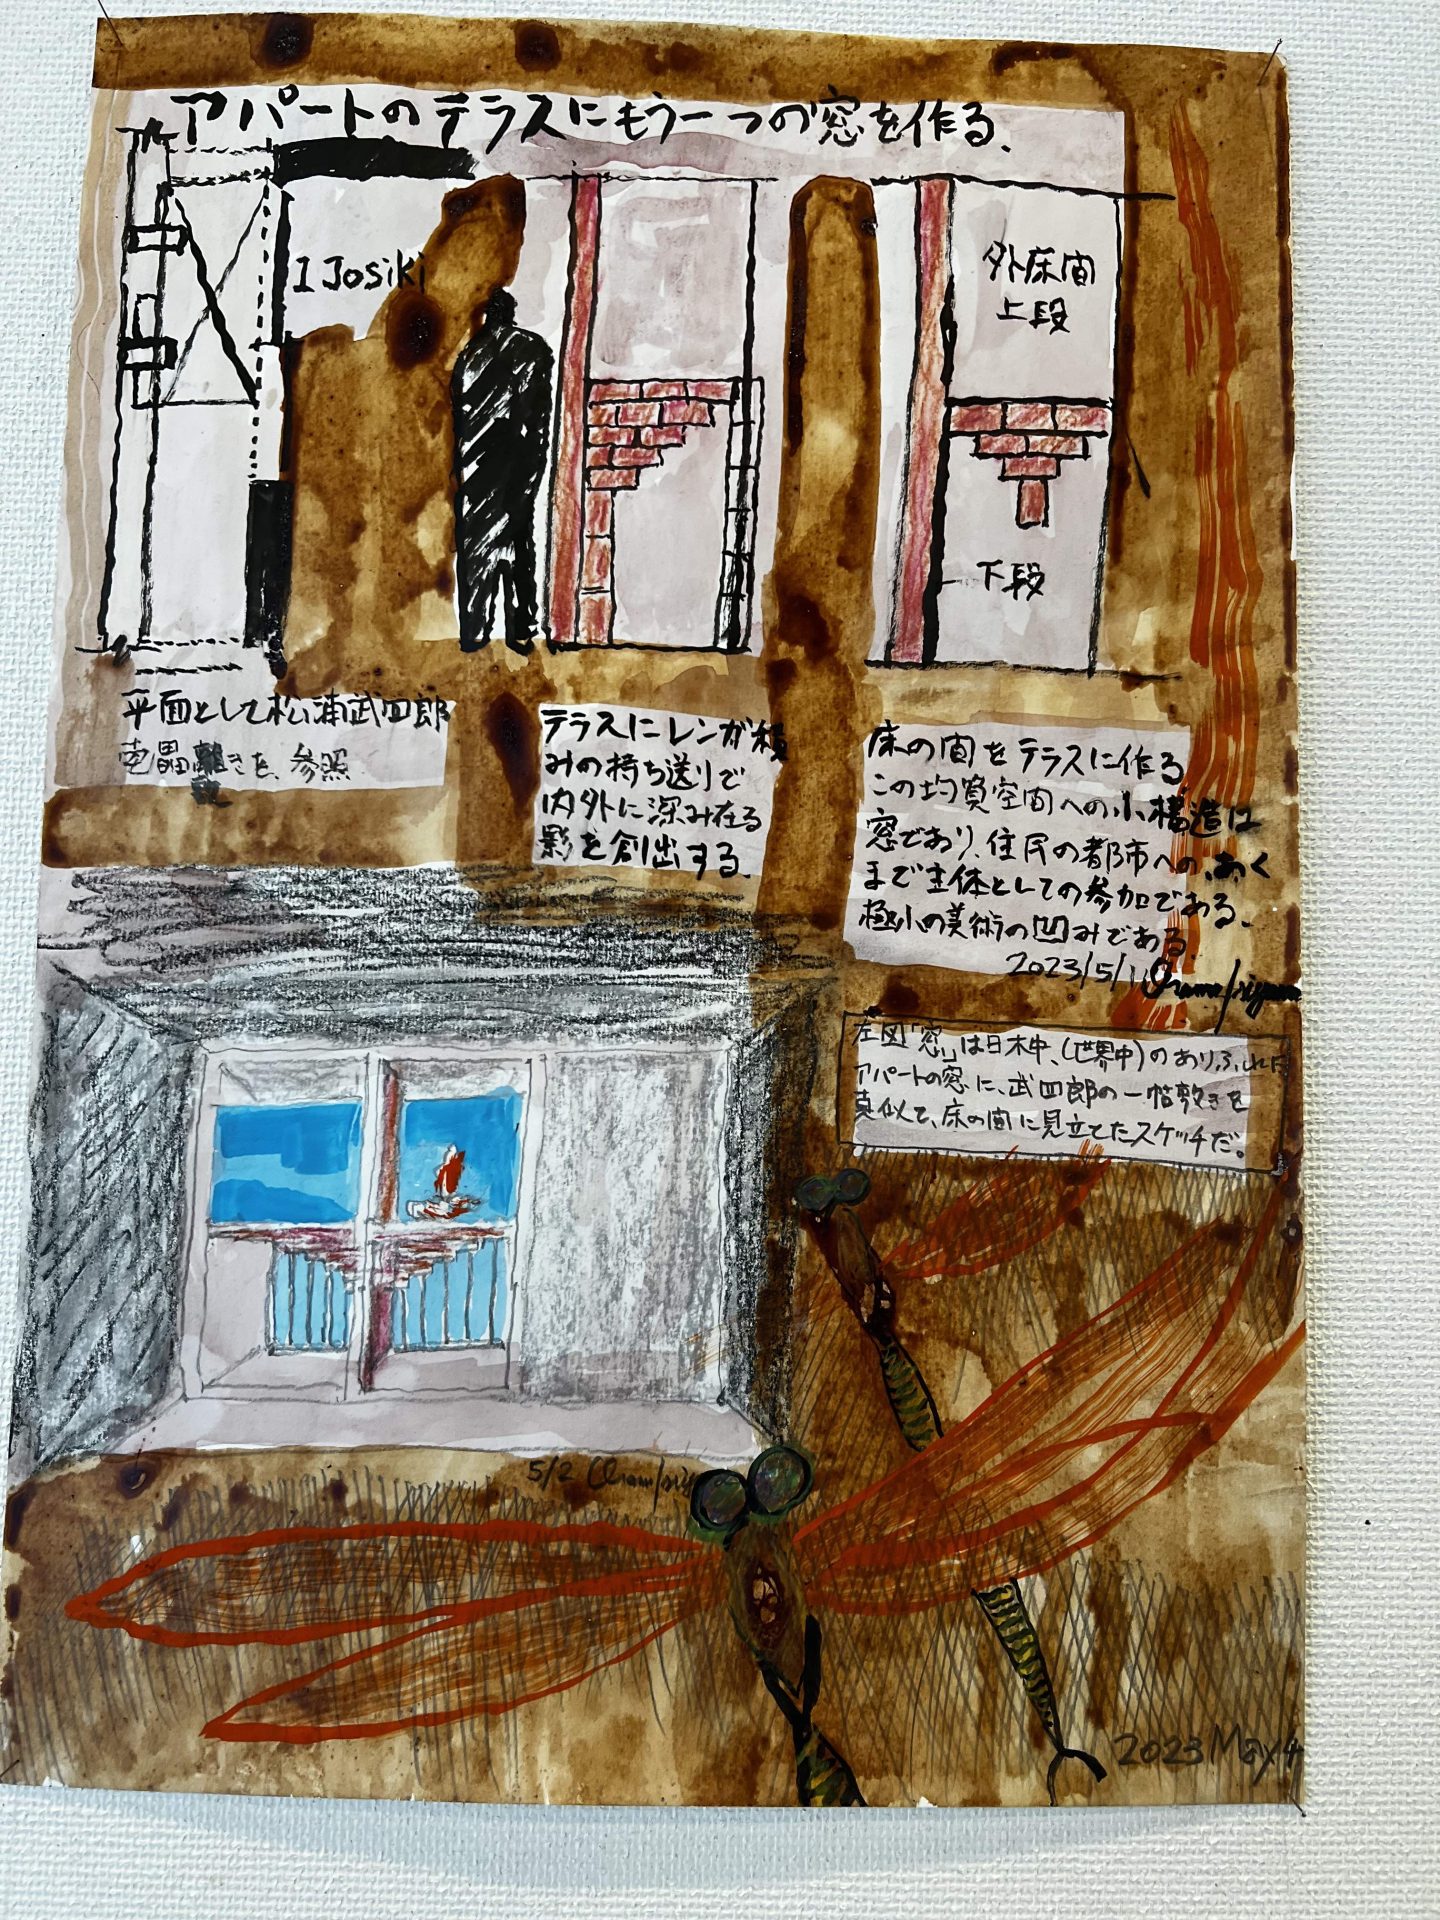 アパートのテラスにもう一つの窓を作る.
I Josiki
外床間
上段
下段
平面として松浦武四郎
壱畳敷きを、参照
テラスにレンガ積
みの持ち送りで
内外に深み在る
影を創出する.
床の間をテラスに作る
この均質空間への小構造は
窓であり、住民の都市への、あく
まで主体としての参加である.
極小の美術の凹みである
2023/5/1
左図「窓」は日本中、(世界中)のありふれた
アパートの窓に、武四郎の一帖敷きを
真似て、床の間に見立てたスケッチだ。
5/2
2023 May 4